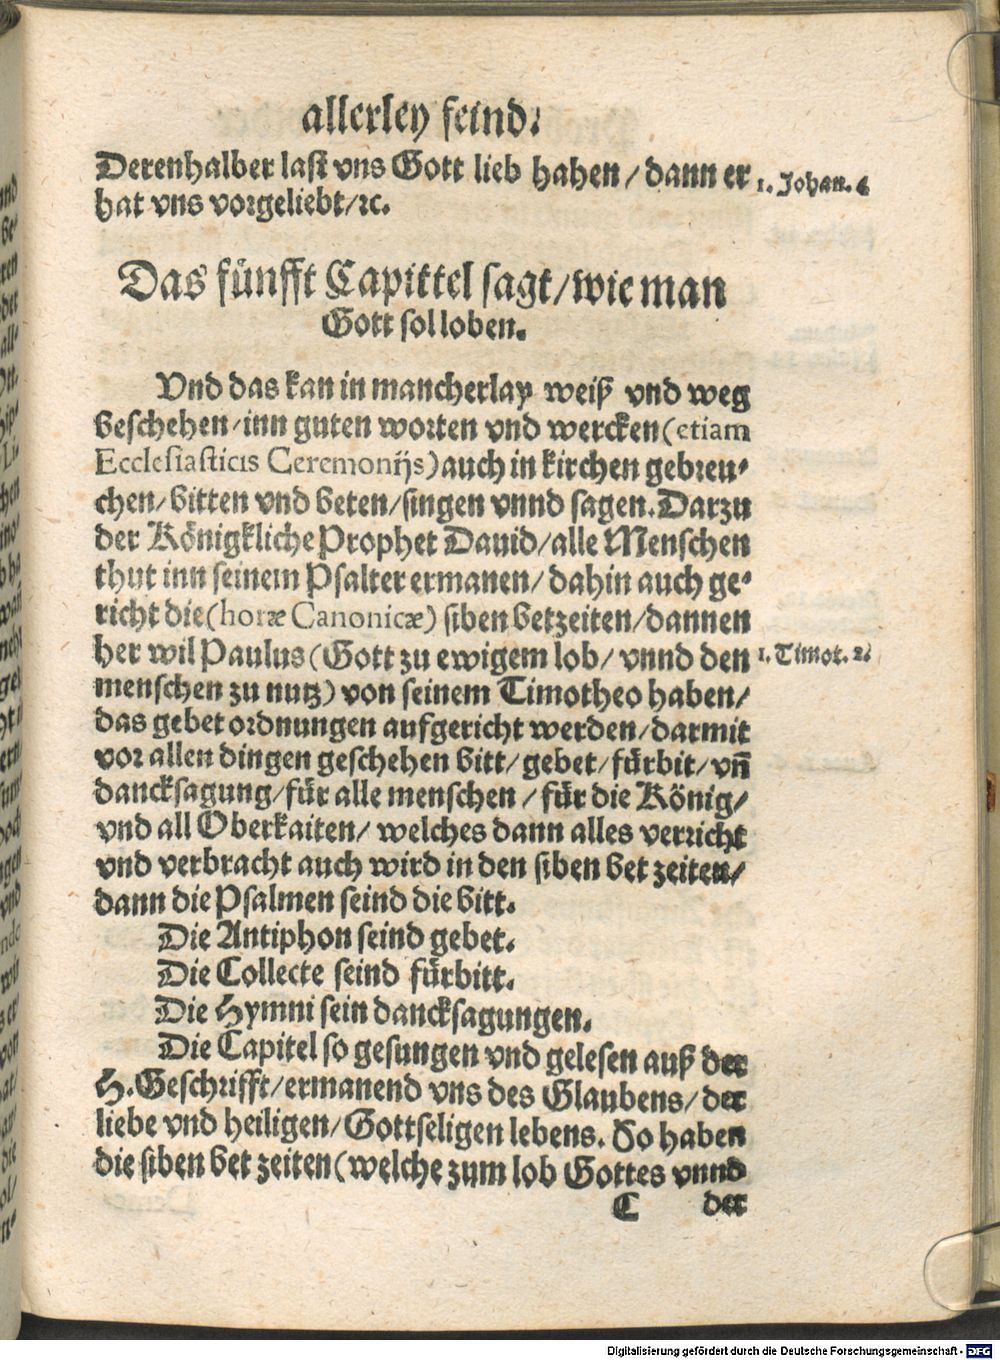 allerley feind.
Derenhalber last vns Gott lieb hahen / dann er
1. Johan. 4
hat vns vorgeliebt/ꝛc.
Das fünfft Capittel sagt/wie man
Gott sol loben.
Vnd das kan in mancherlay weiß vnd weg
beschehen/inn guten worten vnd wercken(etiam
Ecclesiasticis Ceremonijs)auch in kirchen gebreu-
chen/bitten vnd beten/singen vnnd sagen. Darzu
der Königkliche Prophet Dauid/alle Menschen
thut inn seinem Psalter ermanen/ dahin auch ge-
richt die(horæ Canonicæ) siben betzeiten/dannen
her wil Paulus(Gott zu ewigem lob/ vnnd den
1. Timot. 2.
menschen zu nutz) von seinem Timotheo haben/
das gebet ordnungen aufgericht werden/darmit
vor allen dingen geschehen bitt/ gebet/fürbit/vn̄
dancksagung/für alle menschen /für die König/
vnd all Oberkaiten/ welches dann alles verricht
vnd verbracht auch wird in den siben bet zeiten/
dann die Psalmen seind die bitt.
Die Antiphon seind gebet.
Die Collecte seind fürbitt.
Die Hymni sein dancksagungen.
Die Capitel so gesungen vnd gelesen auß der
H.Geschrifft/ermanend vns des Glaubens/der
liebe vnd heiligen/Gottseligen lebens. So haben
die siben bet zeiten(welche zum lob Gottes vnnd
C der
Digitalisierung gefördert durch die Deutsche Forschungsgemeinschaft - DFG